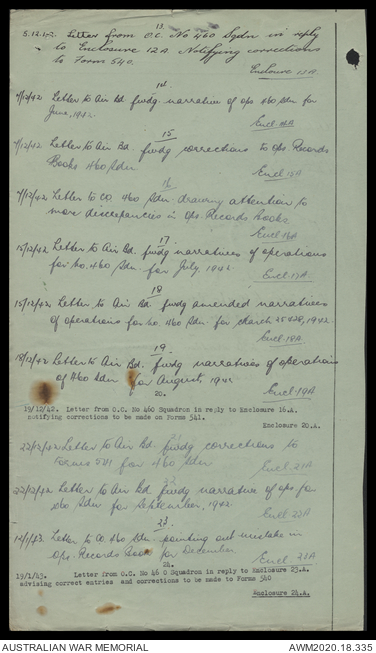 13.
5.12.42. Letter from O.C. No 460 Sqdn in reply
to Enclosure 12A Notifying corrections
to Form 540.
Enclosure 13A.
14
7/12/42 Letter to Air Bd. fwdg. narrative of ops 460 Sdn for
June, 1942.
Encl 14A
15
7/12/42 Letter to Air Bd. fwdg corrections to Ops. Records
Books 460 Sdn
Encl 15A
16
7/12/42 Letter to CO. 460 Sdn. drawing attention to
more discrepancies in Ops. Records books.
Encl 16A
17
15/12/42 Letter to Air Bd. fwdg narratives of operations
for No. 460 Sdn for July, 1942.
Encl. 17A
18
15/12/42, Letter to Air Bd fwdg amended narratives
of operations for No. 460 Sdn. for March 25 & 28, 1942.
Encl. 18A
19.
18/12/42 Letter to Air Bd. fwdg narratives of operations
of 460 Sdn for August, 1942
Encl. 19A
20.
19/12/42. Letter from O.C. No 460 Squadron in reply to Enclosure 16.A.
notifying corrections to be made on Forms 541.
Enclosure 20.A.
21
22/12/42 Letter to Air Bd. fwdg corrections to
Forms 541 for 460 Sdn
Encl 21A
22
22/12/42 Letter to Air Bd. fwdg narrative of ops for
460 Sdn for September, 1942.
Encl 22A
23
14/1/43. Letter to CO. 460 Sdn pointing out mistake in
Ops. Records Book for December
Encl 23A
24.
19/1/43. Letter from O.C. No 46 0 Squadron in reply to Enclosure 23.A.
advising correct entries and corrections to be made to Forms 540
Enclosure 24.A.
AUSTRALIAN WAR MEMORIAL
AWM2020.18.335